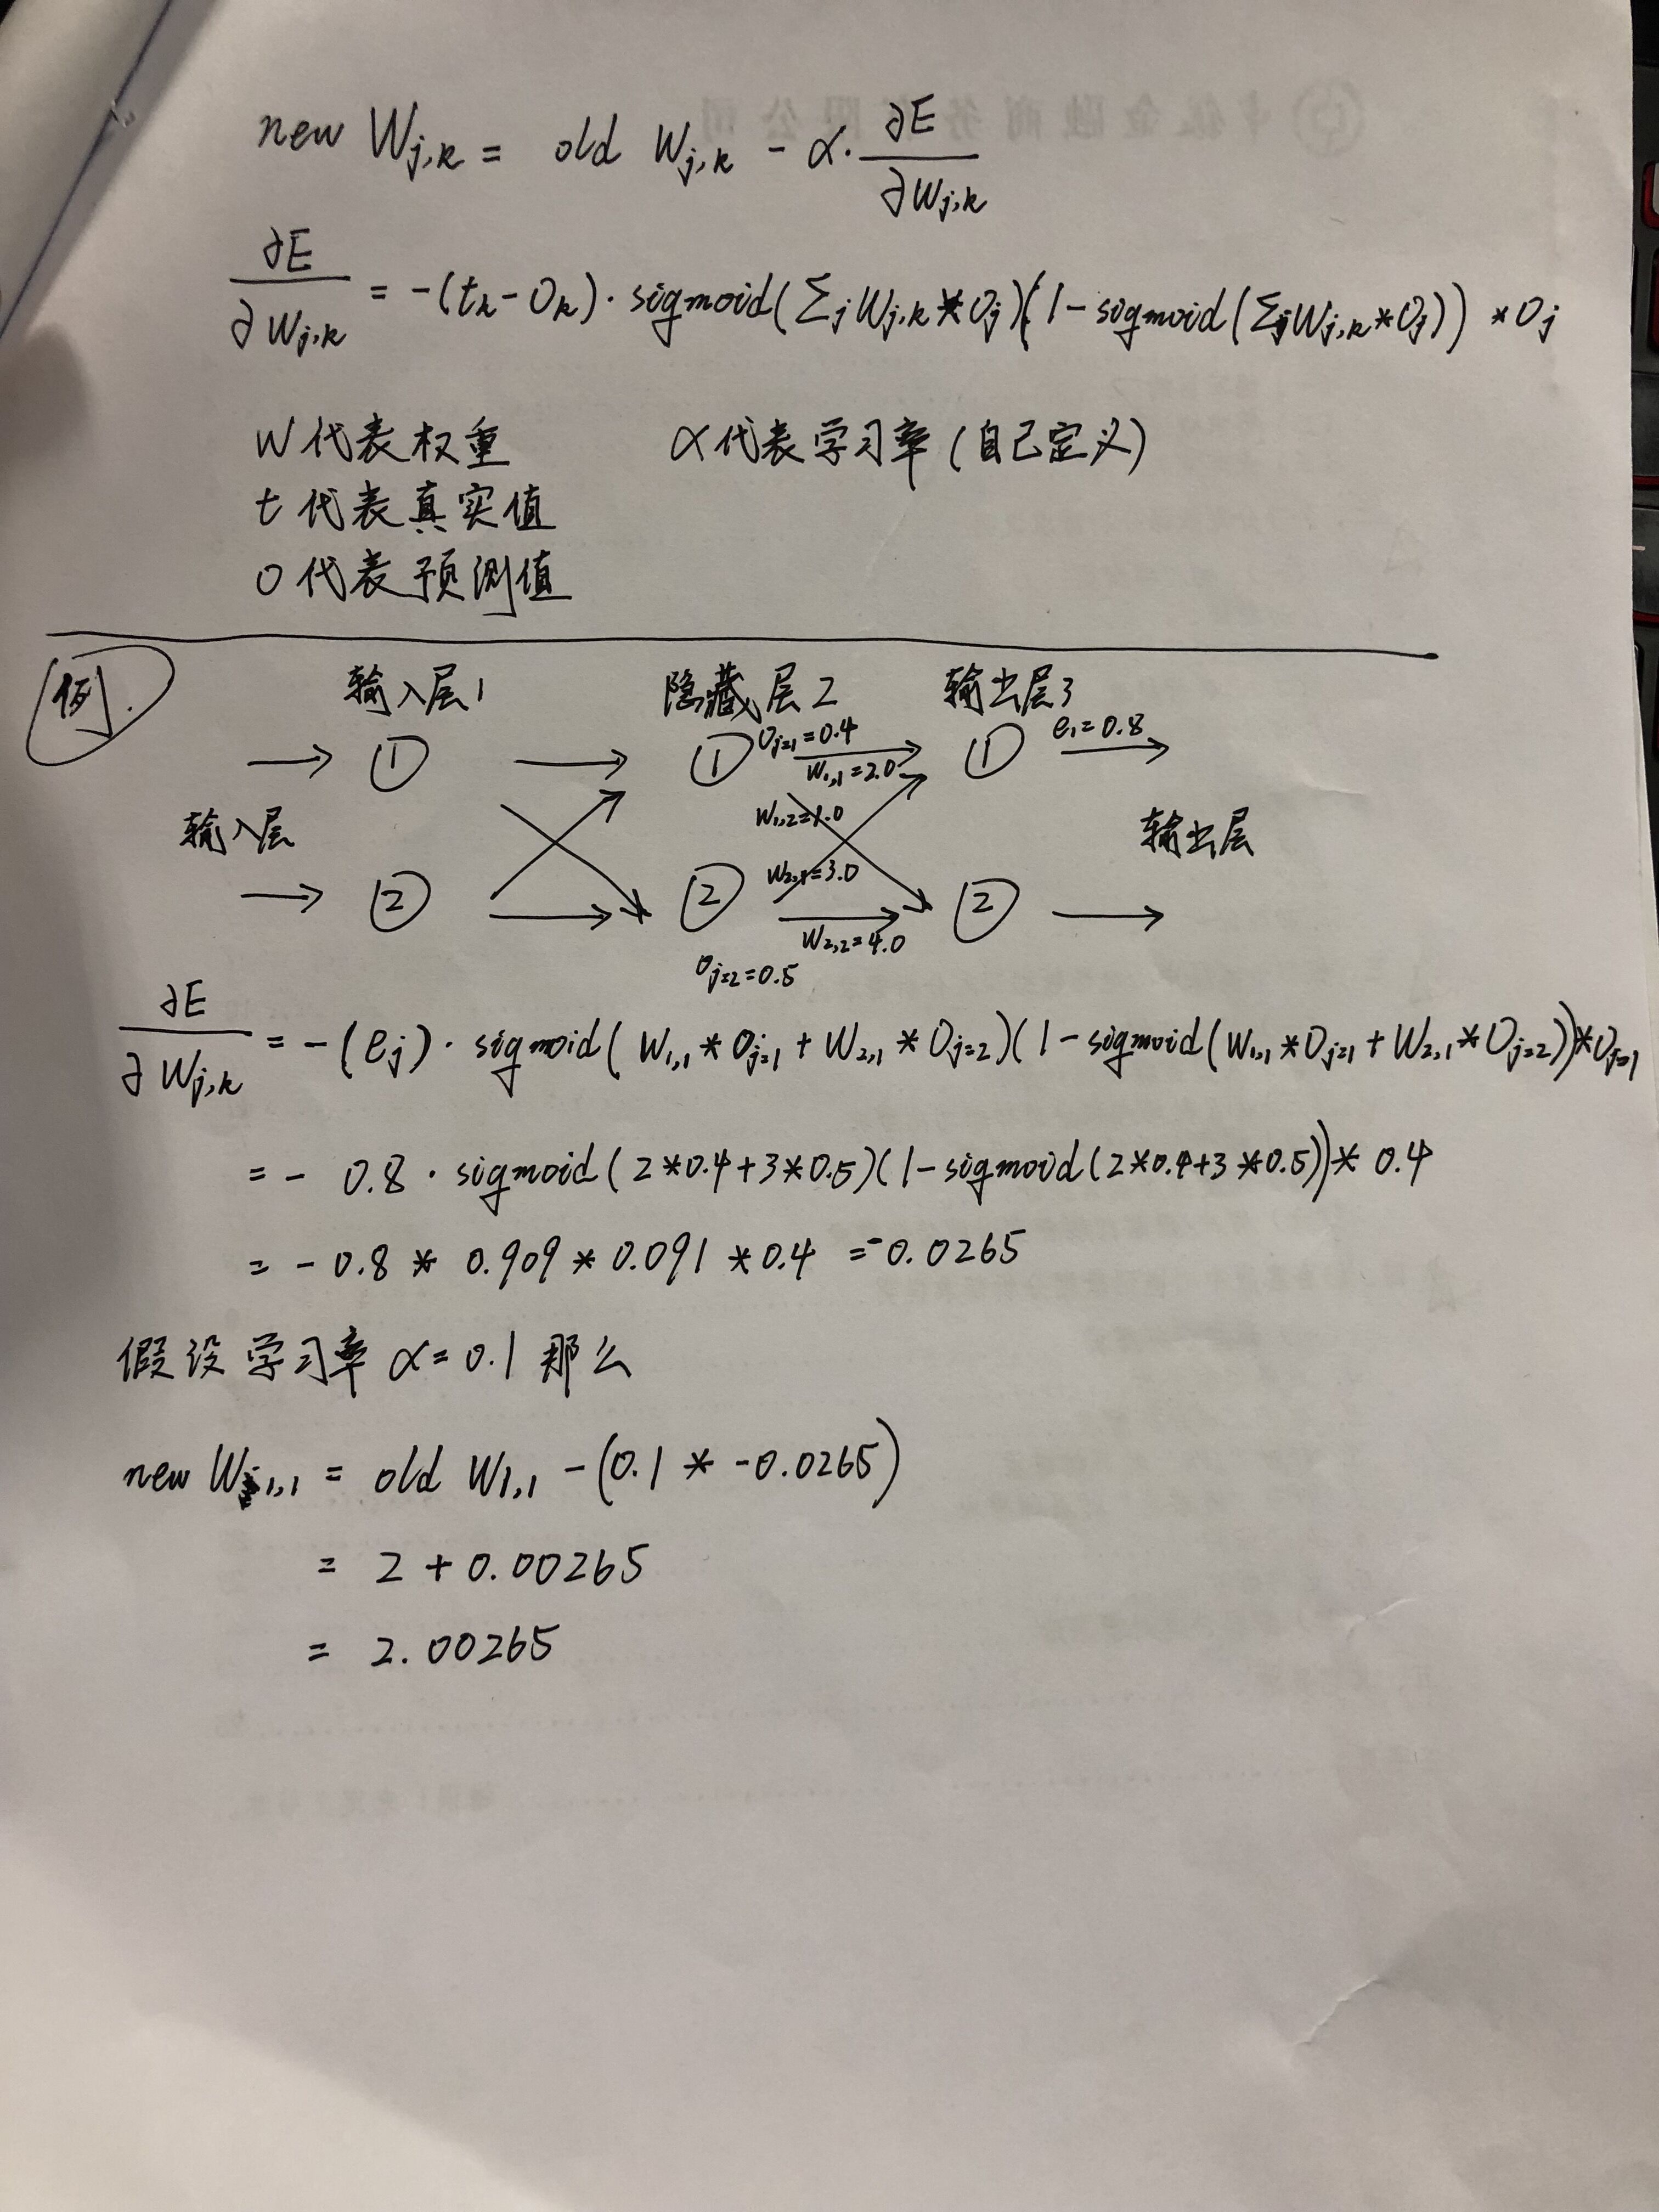 new Wj,k = old Wj,k - α·∂E/∂Wj,k
∂E/∂Wj,k = -(tk-Ok)·sigmoid(Σj Wj,k*Oj)(1-sigmoid(Σj Wj,k*Oj)) *Oj
W代表权重 α代表学习率(自己定义)
t代表真实值
O代表预测值
例.
输入层1 隐藏层2 输出层3
→ ① → ① Oj=1=0.4 W1,1=2.0 → ① e1=0.8 →
W1,2=1.0
输入层 输出层
W2,1=3.0
→ ② → ② W2,2=4.0 → ② →
Oj=2=0.5
∂E/∂Wj,k = -(ej)·sigmoid(W1,1*Oj=1+W2,1*Oj=2)(1-sigmoid(W1,1*Oj=1+W2,1*Oj=2))*Oj=1
= - 0.8·sigmoid(2*0.4+3*0.5)(1-sigmoid(2*0.4+3*0.5))* 0.4
= - 0.8 * 0.909 * 0.091 * 0.4 = -0.0265
假设学习率α=0.1那么
new W1,1 = old W1,1 -(0.1 * -0.0265)
= 2 + 0.00265
= 2.00265